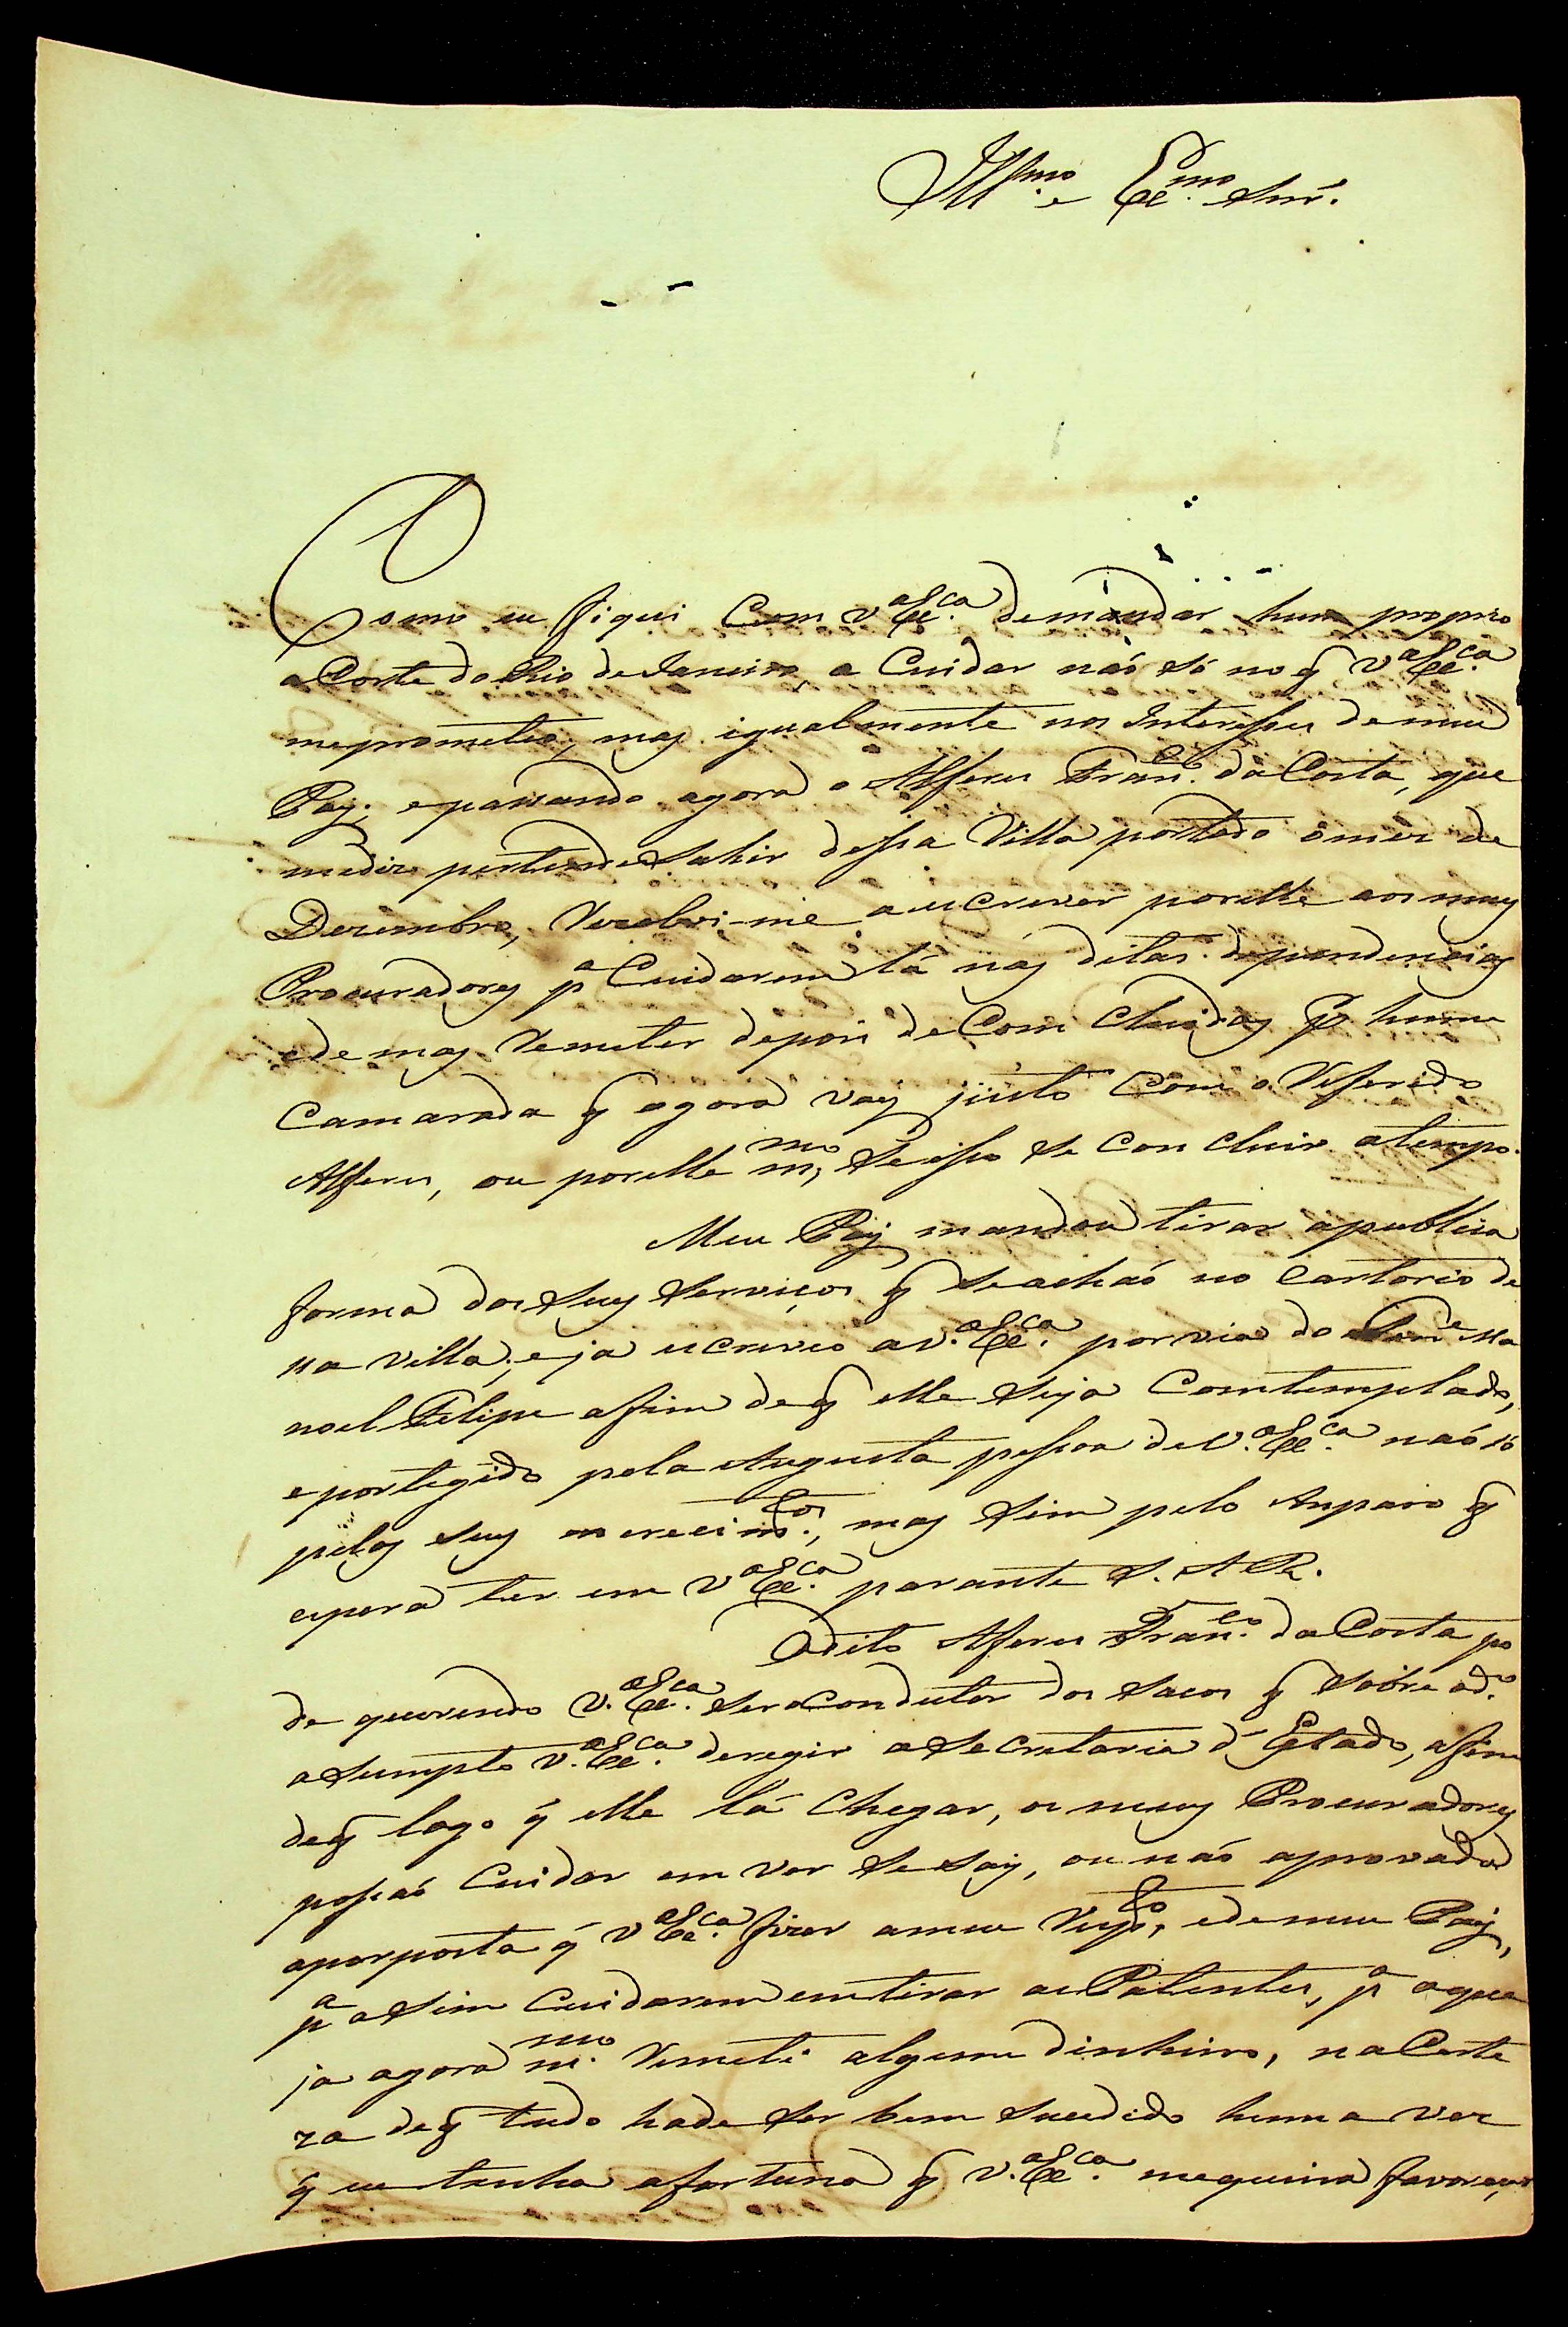 Illmo. e Exmo. Snr.
Como eu fiquei Com V.a Ex.ca de mandar hum proprio
a Corte do Rio de Janeiro, a Cuidar não só no q̃ V.a Ex.ca
me prometeo, mas igualmente nos Interesses de meu
Pay; e passando agora o Alferes Fran.co da Costa, que
me dis pertende Sahir dessa Villa por todo o mes de
Dezembro, Rezolvi-me a escrever por elle aos meus
Procuradores p.a Cuidarem lá nas ditas dependencias
e de mas Remeter depois de Com Cluidas p. hum
Camarada q̃ agora vay junto Com o Referido
Alferes, ou por elle m.mo, Se isso se Con cluir a tempo.
Meu Pay mandou tirar a publica
forma dos Seus Serviços q̃ Se achão no Cartorio de
sa Villa; e ja escreveo a V.a Ex.ca por via do Ten.e Ma
noel Felipe a fim de q̃ elle Seja Comtemplado,
e portegido pela Augusta pessoa de V.a Ex.ca não só
pelos Seus merecim.tos, mas Sim pelo Anparo q̃
espera ter em V.a Ex.ca parante S. A R.
O dito Alferes Fran.co da Costa po
de querendo V.a Ex.ca Ser o Condutor dos Sacos q̃ Sobre o d.o
asumpto V.a Ex.ca deregir a Secretaria d'Estado, a fim
de q̃ logo q̃ elle lá Chegar, os meus Procuradores
possão Cuidar em ver Se Say, ou não aprovada
a porposta q̃ V.a Ex.ca fizer a meu Resp.to, e de meu Pay,
p.a asim Cuidarem em tirar as Patentes, p.a o que
ja agora m.mo Remeti algum dinheiro, na Certe
za de q̃ tudo hade Ser bem Sucedido huma vez
q̃ eu tenha a fortuna q̃ V.a Ex.ca me queira favorecer